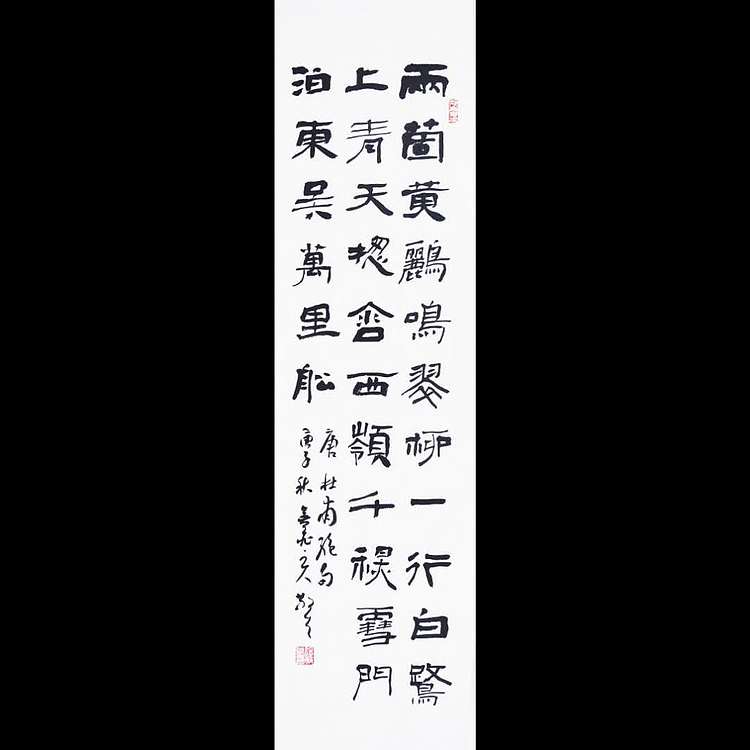 兩箇黃鸝鳴翠柳一行白鷺
上青天窗含西嶺千秋雪門
泊東吳萬里船
唐杜甫絕句
庚子秋